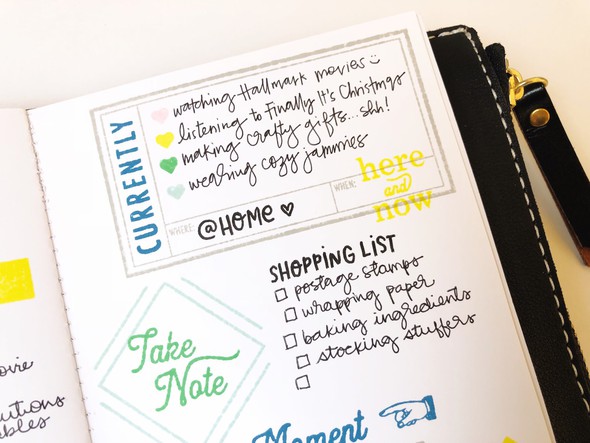 CURRENTLY
watching Hallmark movies
listening to Finally It's Christmas
making crafty gifts...shh!
wearing cozy jammies
WHERE: @HOME
WHEN: here
and
now
SHOPPING LIST
postage stamps
wrapping paper
baking ingredients
stocking stuffers
Take
Note
Moment